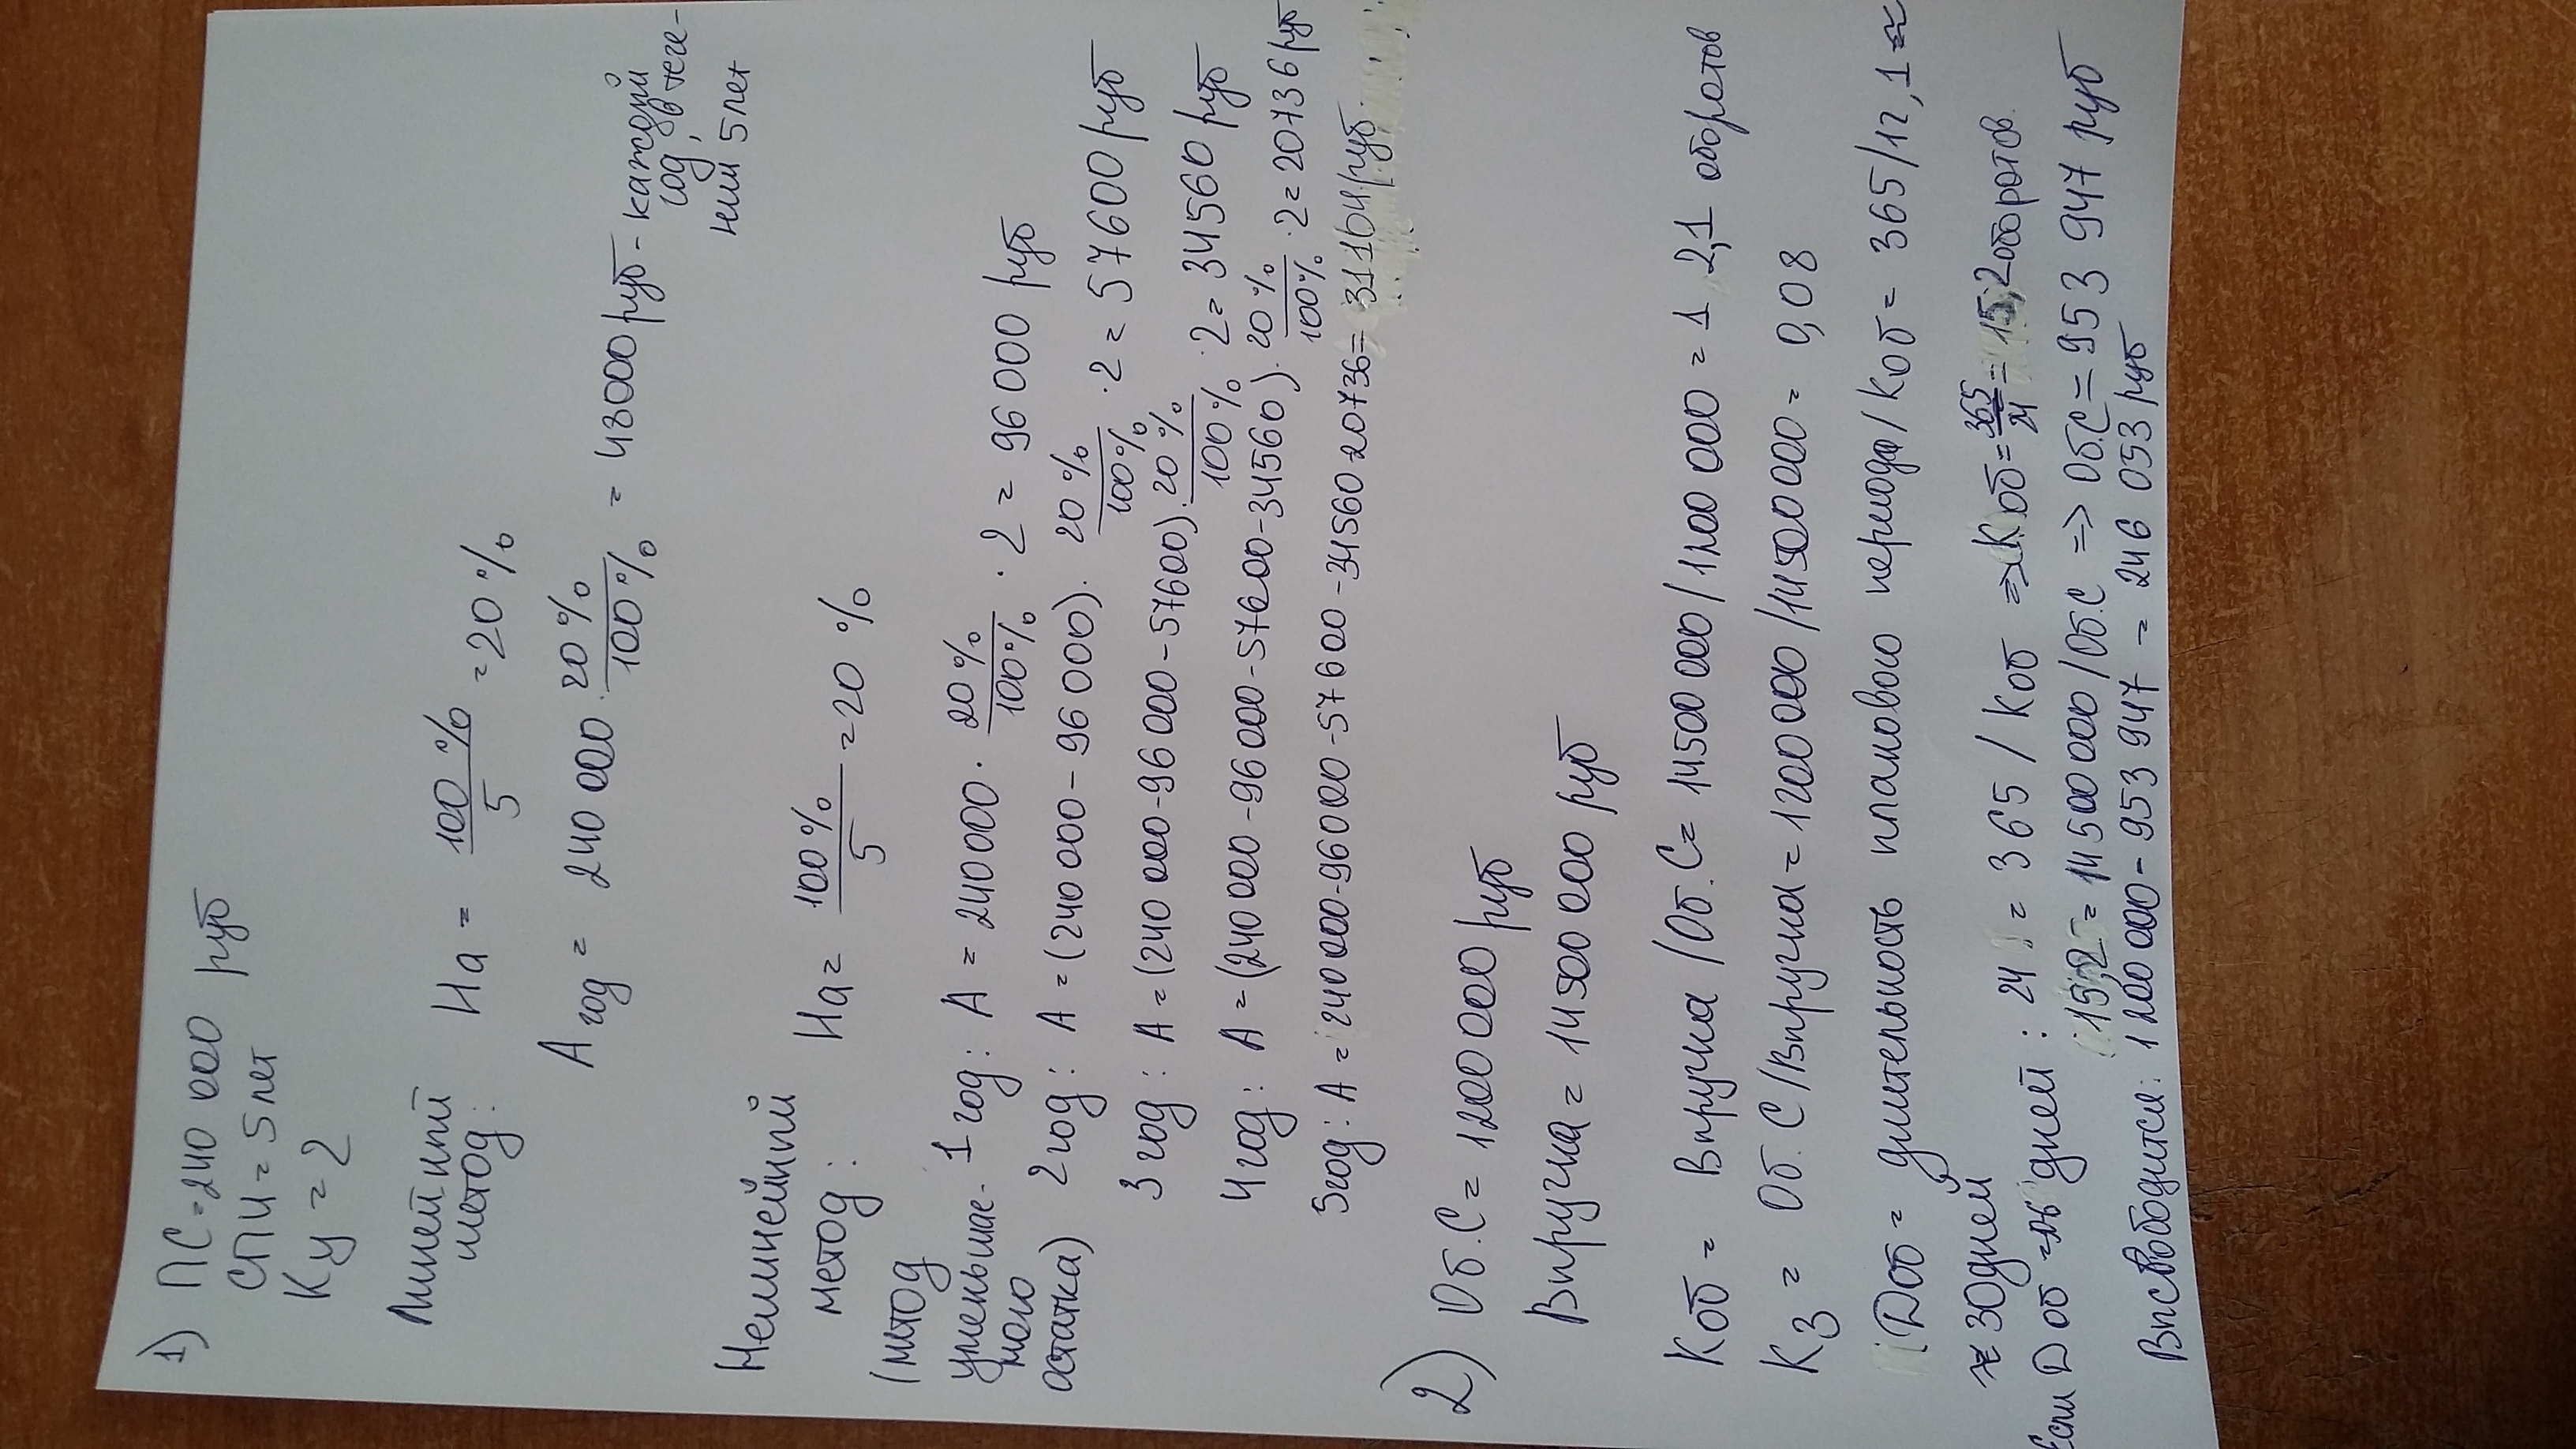 1) ПС=240 000 руб
СПИ = 5 лет
Ку = 2
Линейный метод: На = 100%/5 = 20%
Aгод = 240 000 · 20%/100% = 48000 руб - каждый год, в тече-
нии 5 лет
Нелинейный метод: На = 100%/5 = 20 %
(мтод уменьшае-
мого
остатка)
1 год: А = 240000 · 20%/100% · 2 = 96 000 руб
2 год: А = (240 000 - 96 000) · 20%/100% · 2 = 57600 руб
3 год: А = (240 000-96 000-57600) · 20%/100% · 2 = 34560 руб
4 год: А = (240 000 -96 000-57600-34560) · 20%/100% · 2 = 20736 руб
5 год: А = 240 000-96000-57600-34560 20736= 31104 руб.
2) Об.С = 1200 000 руб
Выручка = 14 500 000 руб
Коб = Выручка /Об.С = 14500 000/1200 000 = 12,1 оборотов
Кз = Об.С/Выручка = 1200 000/14500000 = 0,08
Доб = длительность планового периода/Коб = 365/12,1 ≈
≈ 30дней
Если Доб = дней : 24 = 365 / Коб => Коб = 365/24 = 15,2оборотов.
15,2 = 14 500 000/Об.С => Об.С = 953 947 руб
Высвободится: 1200 000 - 953 947 = 246 053 руб